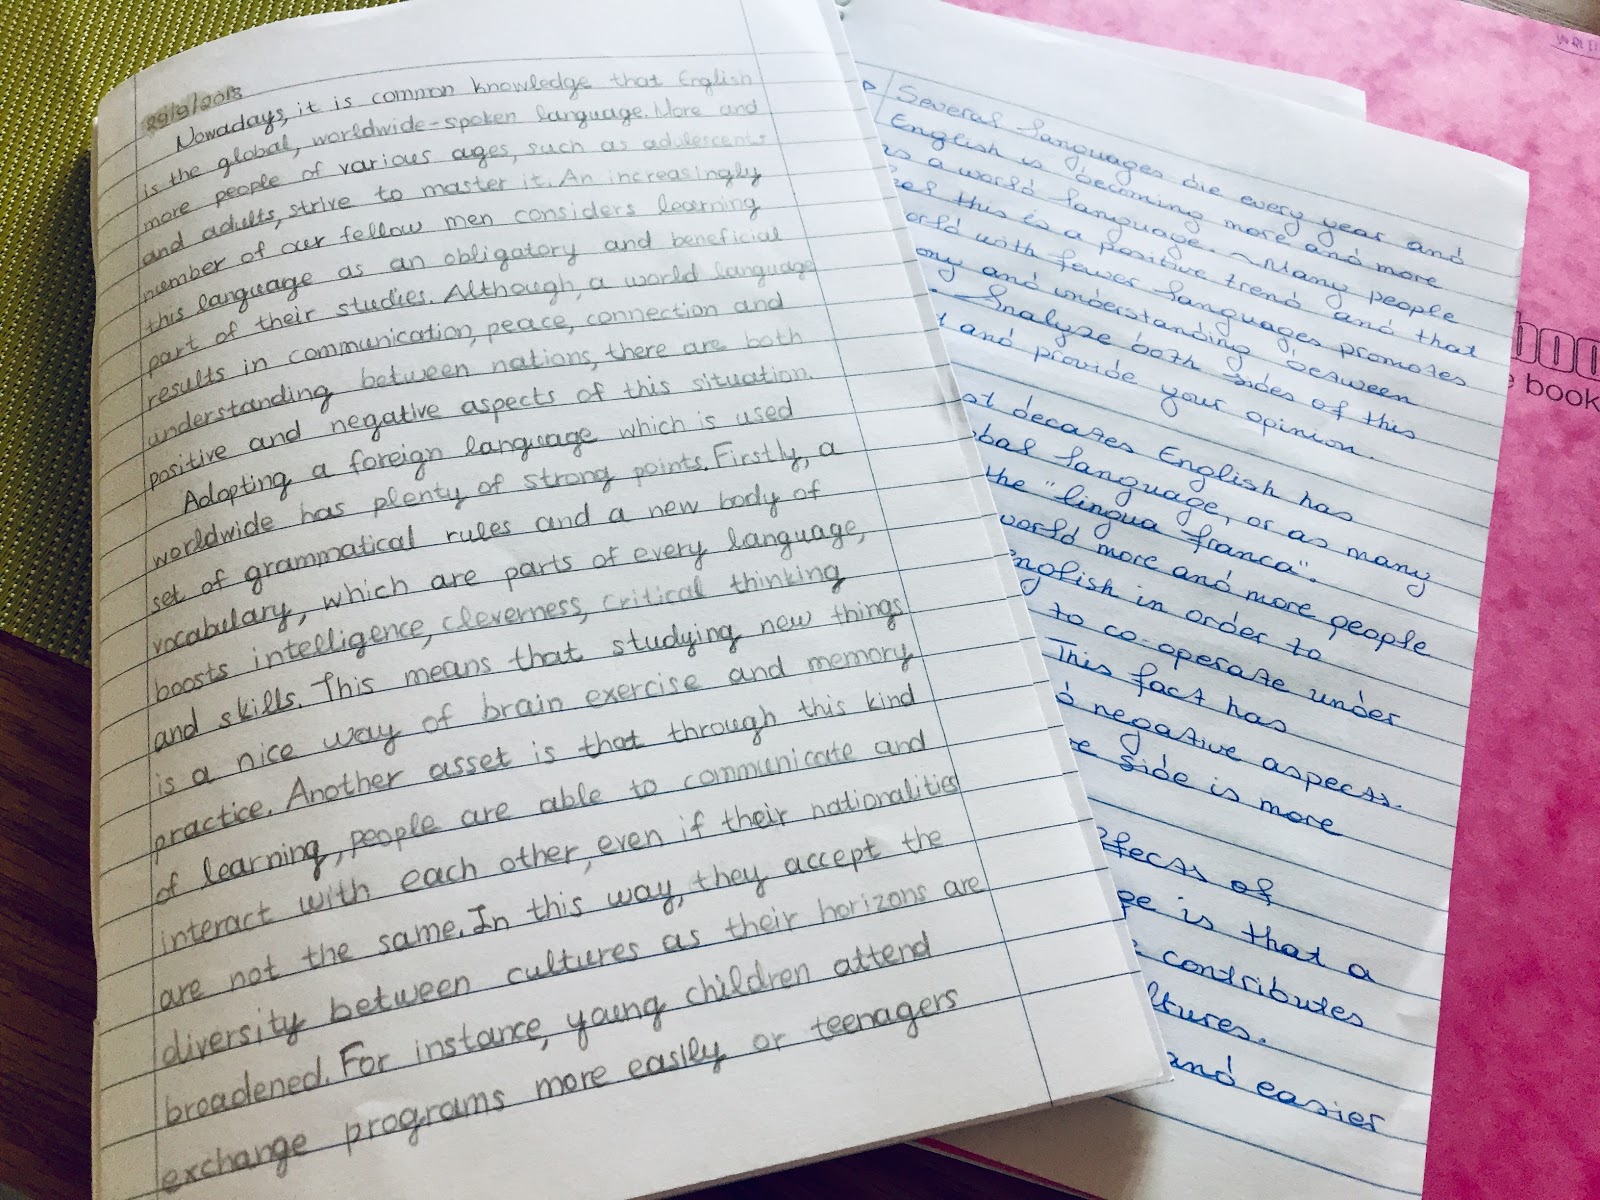 29/9/2018
Nowadays, it is common knowledge that English
is the global, worldwide-spoken language. More and
more people of various ages, such as adulescents
and adults, strive to master it. An increasingly
number of our fellow men considers learning
this language as an obligatory and beneficial
part of their studies. Although, a world language
results in communication, peace, connection and
understanding between nations, there are both
positive and negative aspects of this situation.
Adopting a foreign language which is used
worldwide has plenty of strong points. Firstly, a
set of grammatical rules and a new body of
vocabulary, which are parts of every language,
boosts intelligence, cleverness, critical thinking
and skills. This means that studying new things
is a nice way of brain exercise and memory
practice. Another asset is that through this kind
of learning, people are able to communicate and
interact with each other, even if their nationalities
are not the same. In this way, they accept the
diversity between cultures as their horizons are
broadened. For instance, young children attend
exchange programs more easily or teenagers
Several languages die every year and
English is becoming more and more
as a world language. Many people
this is a positive trend and that
with fewer languages promotes
and understanding between
Analyze both sides of this
and provide your opinion.
decates English has
language, or as many
the "lingua franca".
world more and more people
English in order to
to co-operate under
This fact has
negative aspects.
side is more
of
is that a
contributes
and easier
book